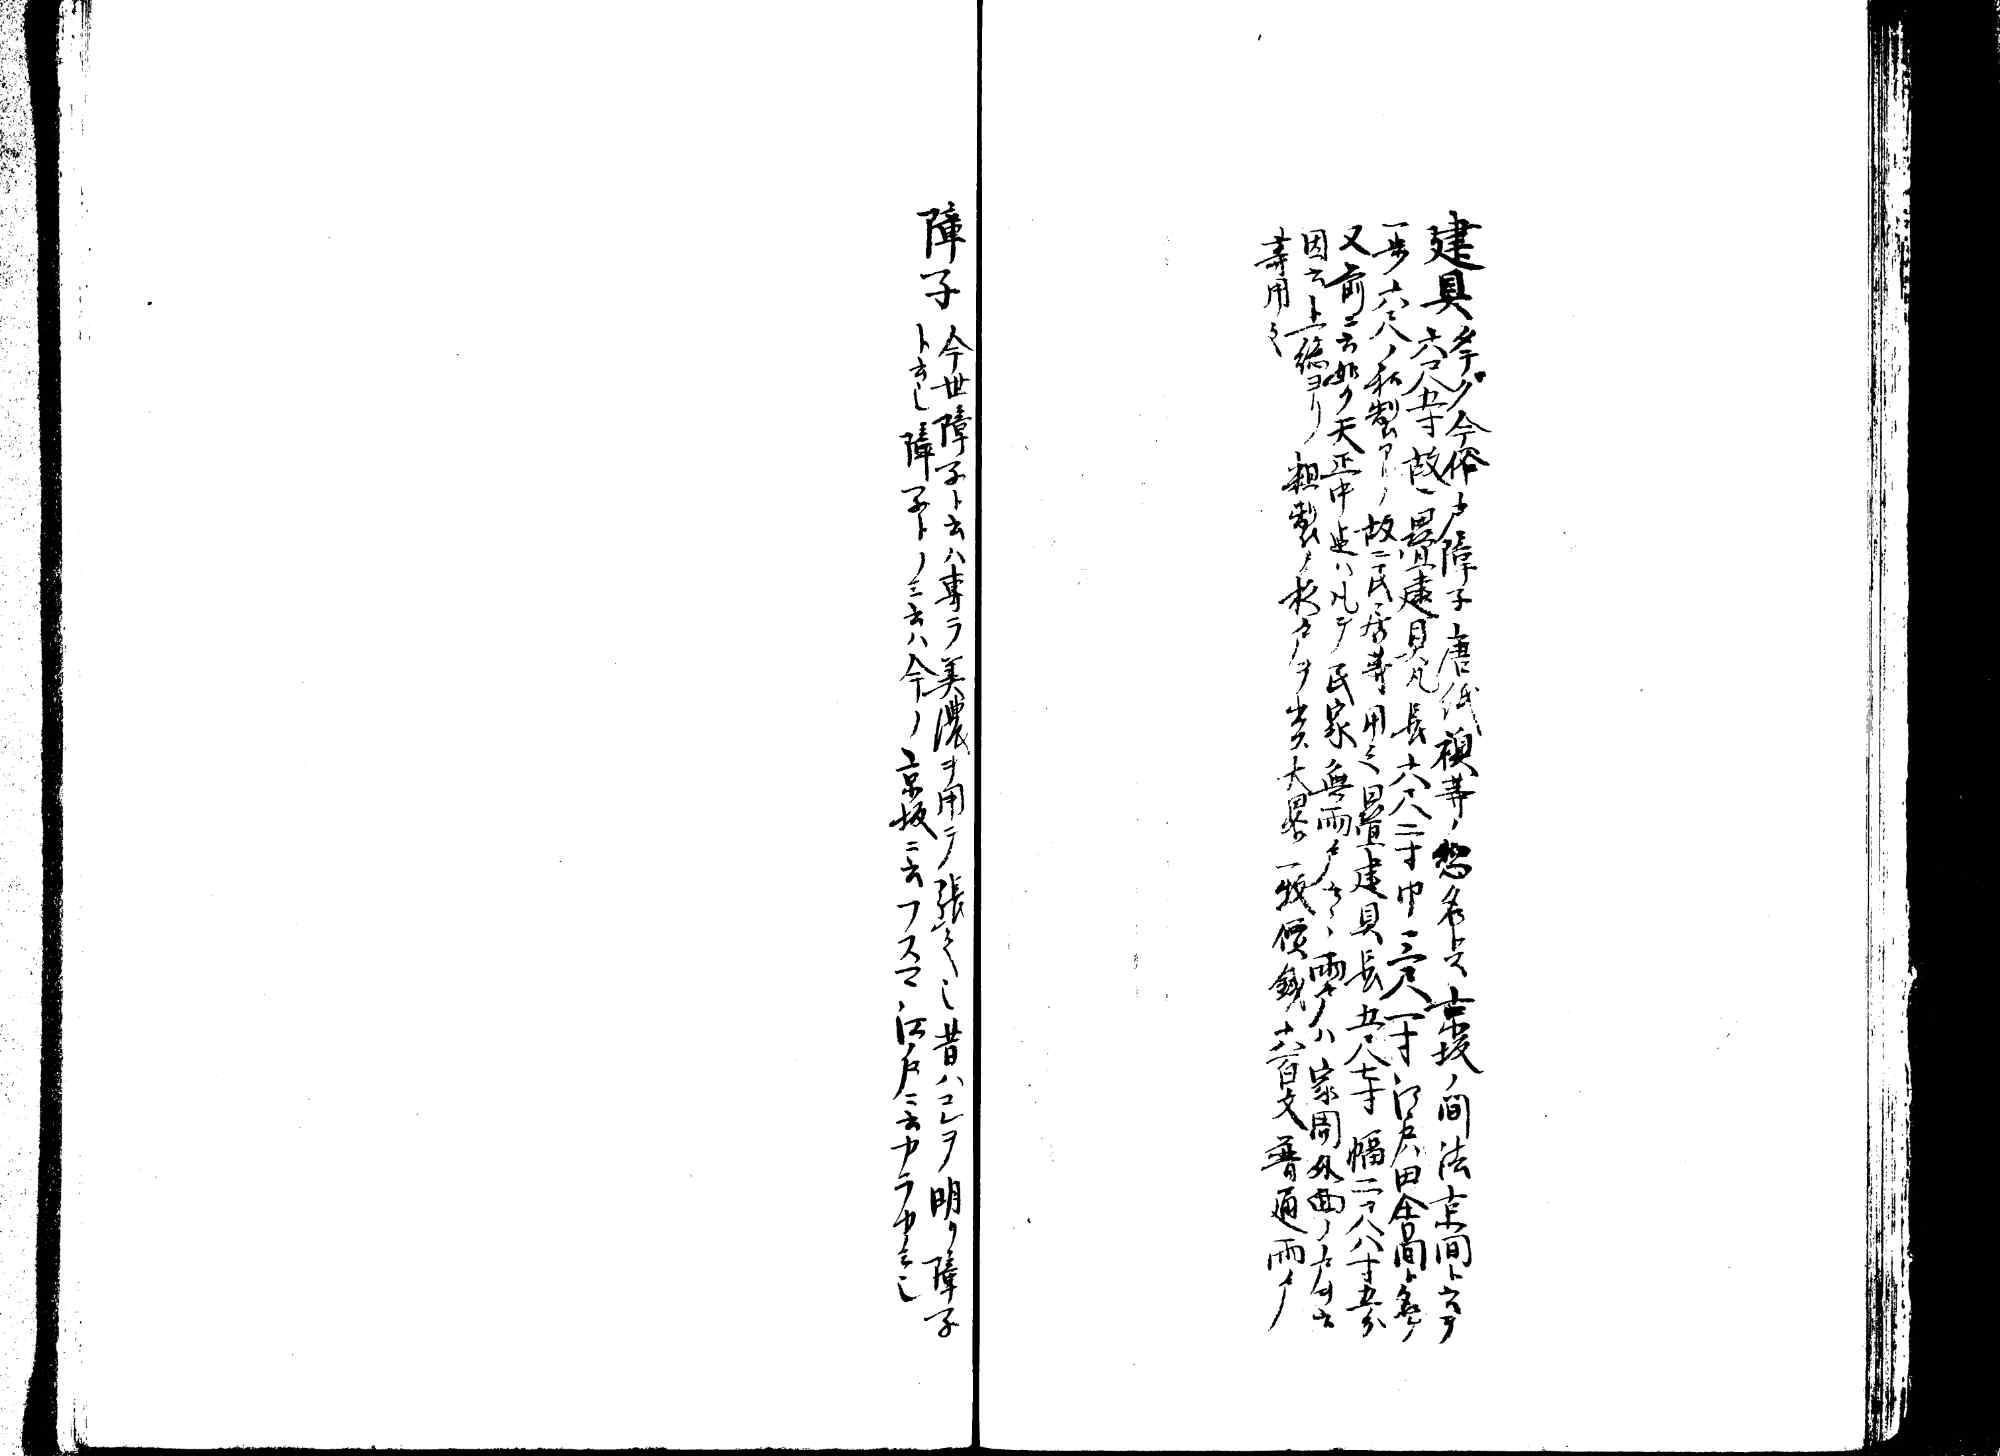 建具 タテグ今俗戸障子唐紙襖等ノ惣名トス京坂ノ間法京間ト云テ
六尺五寸故ニ畳建具凡長六尺二寸巾三尺一寸江戸田舎間ト名ケ
一歩六尺ノ私製アリ故ニ民居等用之畳建具長五尺七寸幅二尺八寸五分
又前ニ云如ク天正中迄ハ凡テ民家無雨戸雨戸ハ家周外曲ノ戸ヲ云
因云上総ヨリ粗製ノ杉戸ヲ出ス大畧一枚價銭六百文普通雨戸
等用之
障子 今世障子ト云ハ専ラ美濃ヲ用テ張之也昔ハコレヲ明リ障子
ト云也障子トノミ云ハ今ノ京坂ニ云フスマ江戸ニ云カラカミ也